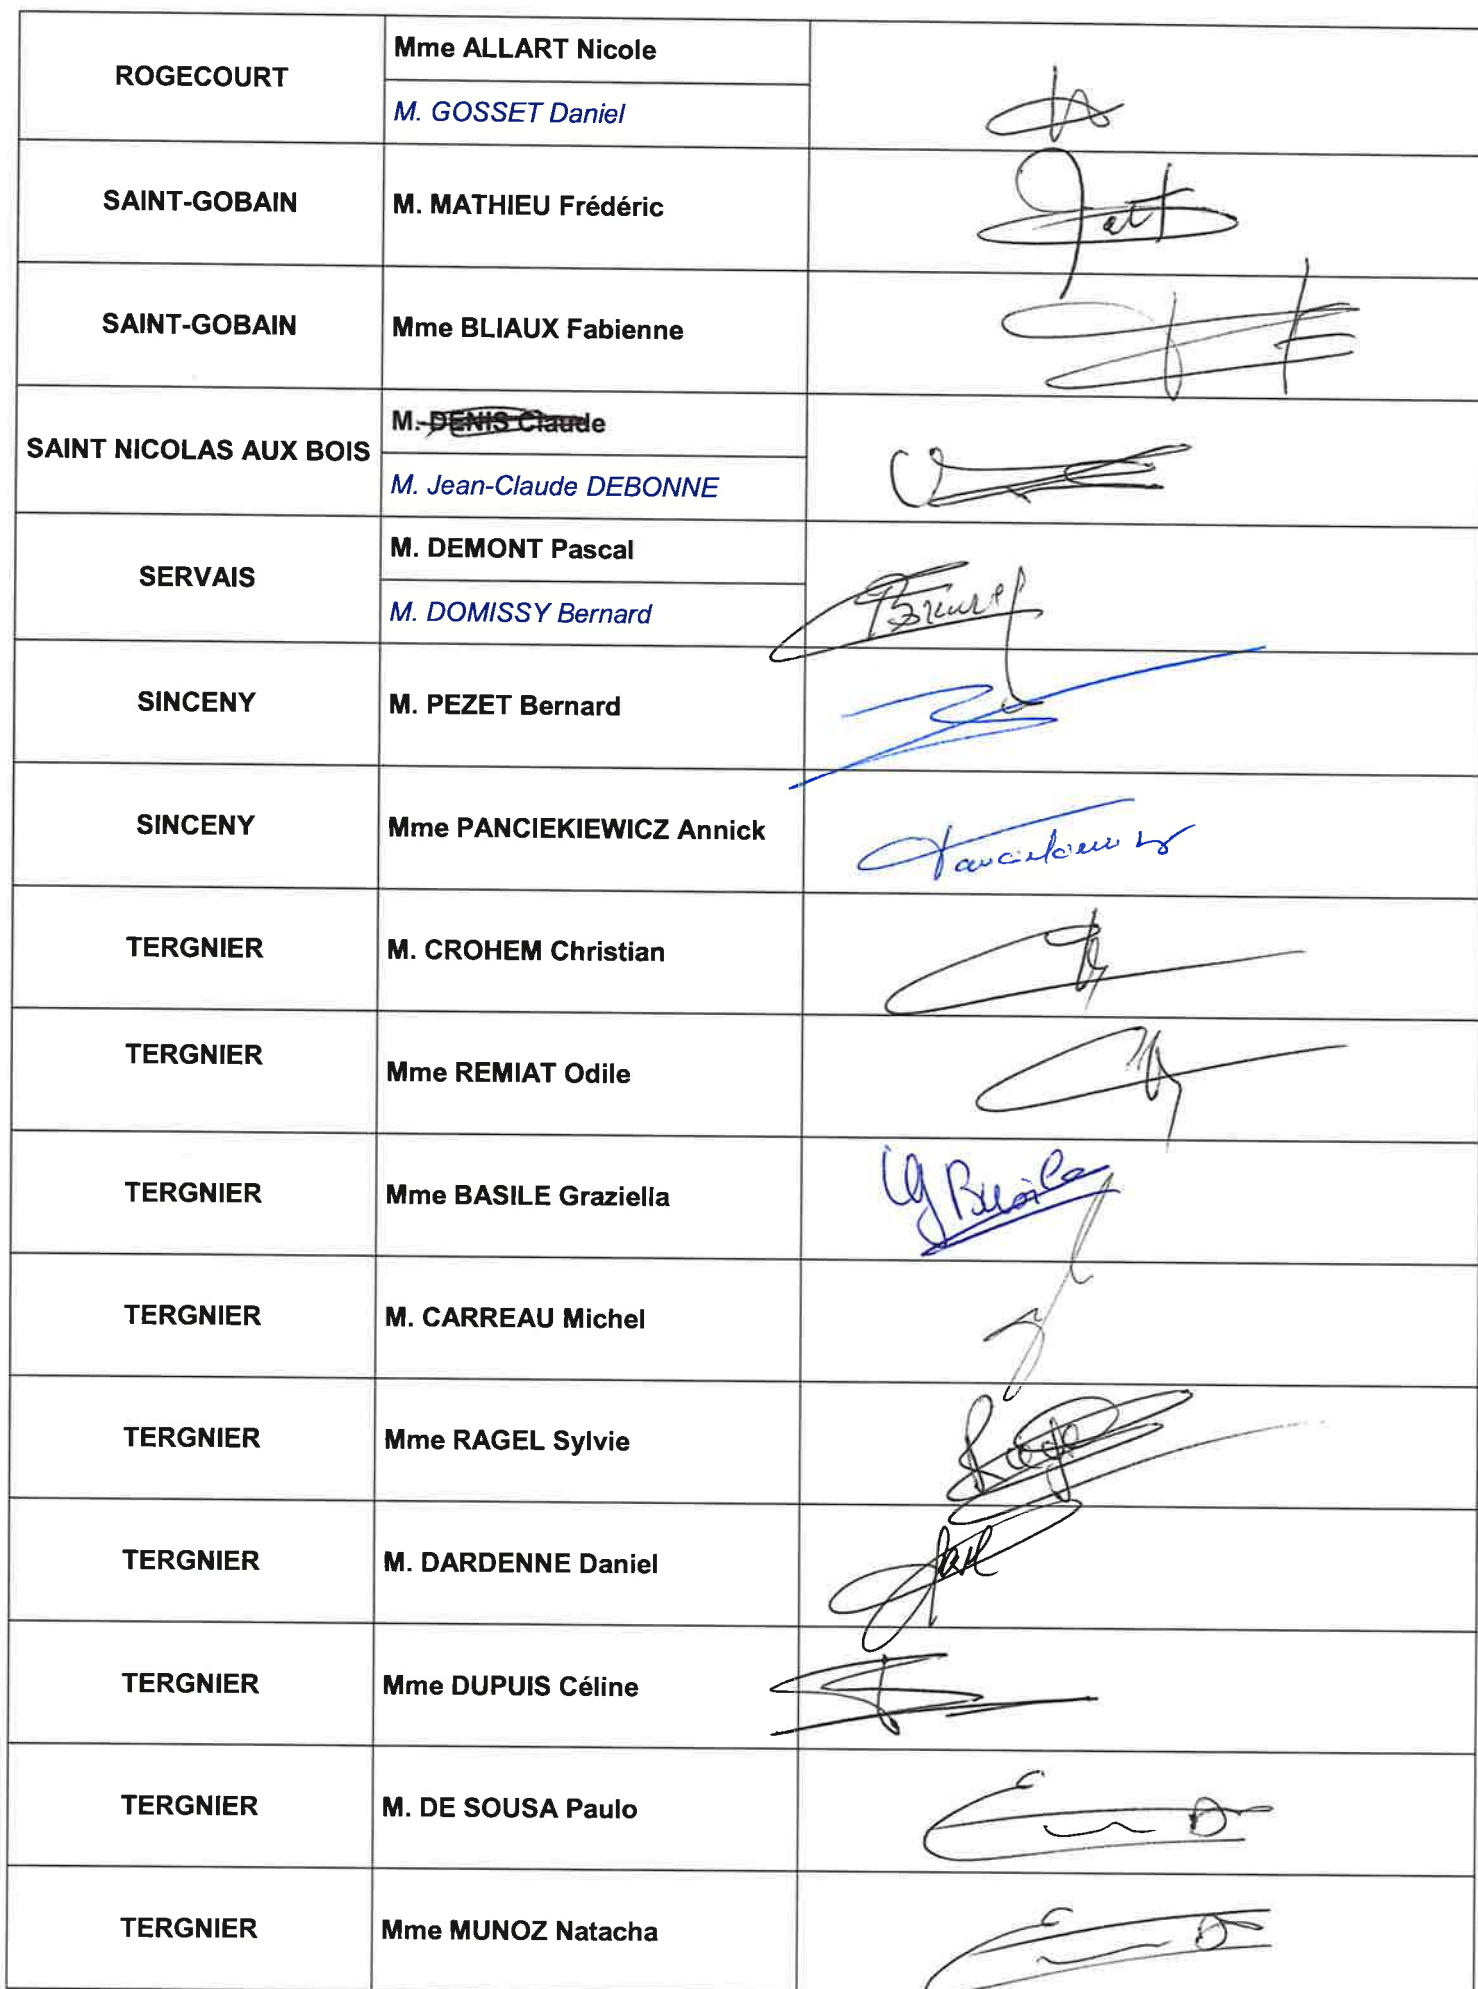 ROGECOURT
Mme ALLART Nicole
M. GOSSET Daniel
SAINT-GOBAIN
M. MATHIEU Frédéric
SAINT-GOBAIN
Mme BLIAUX Fabienne
SAINT NICOLAS AUX BOIS
M. DENIS Claude
M. Jean-Claude DEBONNE
SERVAIS
M. DEMONT Pascal
M. DOMISSY Bernard
SINCENY
M. PEZET Bernard
SINCENY
Mme PANCIEKIEWICZ Annick
TERGNIER
M. CROHEM Christian
TERGNIER
Mme REMIAT Odile
TERGNIER
Mme BASILE Graziella
TERGNIER
M. CARREAU Michel
TERGNIER
Mme RAGEL Sylvie
TERGNIER
M. DARDENNE Daniel
TERGNIER
Mme DUPUIS Céline
TERGNIER
M. DE SOUSA Paulo
TERGNIER
Mme MUNOZ Natacha